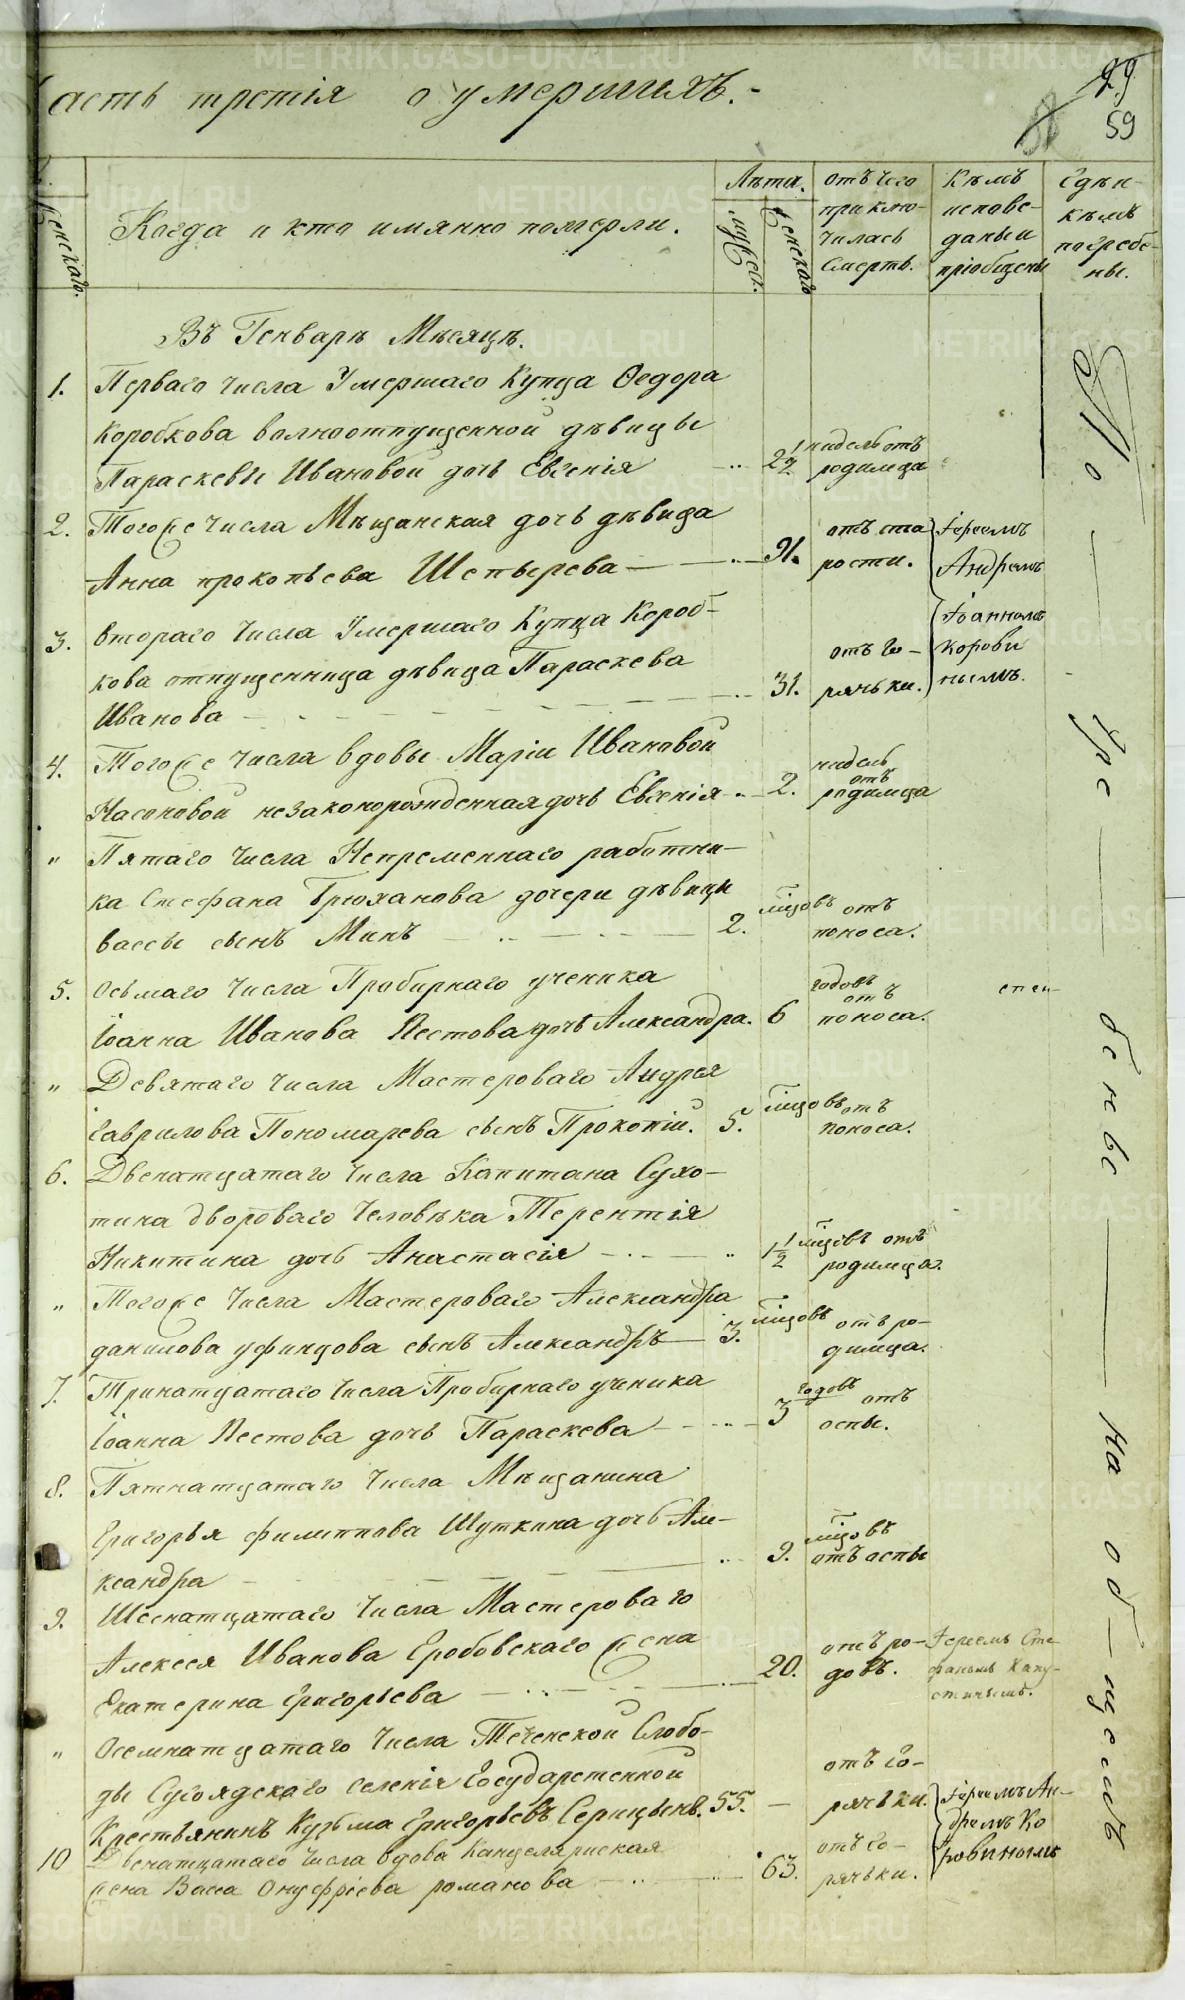 Часть третія о умершихъ.
59
Женскаго.
Когда и кто имянно померли.
Лѣта.
мужеск.
Женскаго
отъ чего
приклю-
чилась
смерть.
Кѣмъ
испове-
даны и
пріобщены
Гдѣ и
кѣмъ
погребе-
ны.
Въ Генварѣ Мѣсяцѣ.
1. Перваго числа Умершаго Купца Ѳедора
Коробкова волноотпущенной дѣвицы
Параскевы Ивановой дочь Евгенія 2 1/2 недель отъ
родимца
2. Тогоже числа Мѣщанская дочь дѣвица
Анна прокопьева Шепырева 91. отъ ста
рости. Іереемъ
Андреемъ
3. втораго числа Умершаго Купца Короб-
кова отпущенница дѣвица Параскева
Иванова 31. отъ го-
рячьки. Іоанномъ
Корови
нымъ.
4. Тогоже числа вдовы Маріи Ивановой
Насоновой незаконорожденная дочь Евгенія 2. недель
отъ
родимца
" Пятаго числа Непременнаго работни-
ка Стефана Брюханова дочери дѣвицы
вассы сынъ Минъ 2. мѣцовъ отъ
поноса.
5. Осьмаго числа Пробирнаго ученика
Іоанна Иванова Пестова дочь Александра. 6 годовъ
отъ
поноса.
" Девятаго числа Мастероваго Андрея
Гаврилова Пономарева сынъ Прокопій. 5. мѣцовъ отъ
поноса.
6. Двенатцатаго числа Капитана Сухо-
тина двороваго человѣка Терентія
Никитина дочь Анастасія " 1 1/2 мѣцовъ отъ
родимца.
" Тогоже числа Мастероваго Александра
данилова уфинцова сынъ Александръ 3. мѣцовъ отъ ро-
димца.
7. Тринатцатаго числа Пробирнаго ученика
Іоанна Пестова дочь Параскева 3 годовъ отъ
оспы.
8. Пятнатцатаго числа Мѣщанина
Григорья филиппова Шуткина дочь Але-
ксандра 9. мѣцовъ
отъ оспы
9. Шеснатцатаго числа Мастероваго
Алексея Иванова Гробовскаго жена
Екатерина григорьева 20. отъ ро-
довъ. Іереемъ Сте
фаномъ Капу-
стинымъ.
" Осемнатцатаго числа Теченской Слобо-
ды Сугоядскаго селенія Государственной
Крестьянинъ Кузьма Григорьевъ Серицынъ. 55. отъ го-
рячьки. Іереемъ Ан-
дреемъ Ко
ровинымъ
10 Двенатцатаго числа вдова Канцеляриская
жена Васса Онуфріева романова 63. отъ го-
рячьки.
По - гре - бенъ - на об - щемъ
METRIKI.GASO-URAL.RU